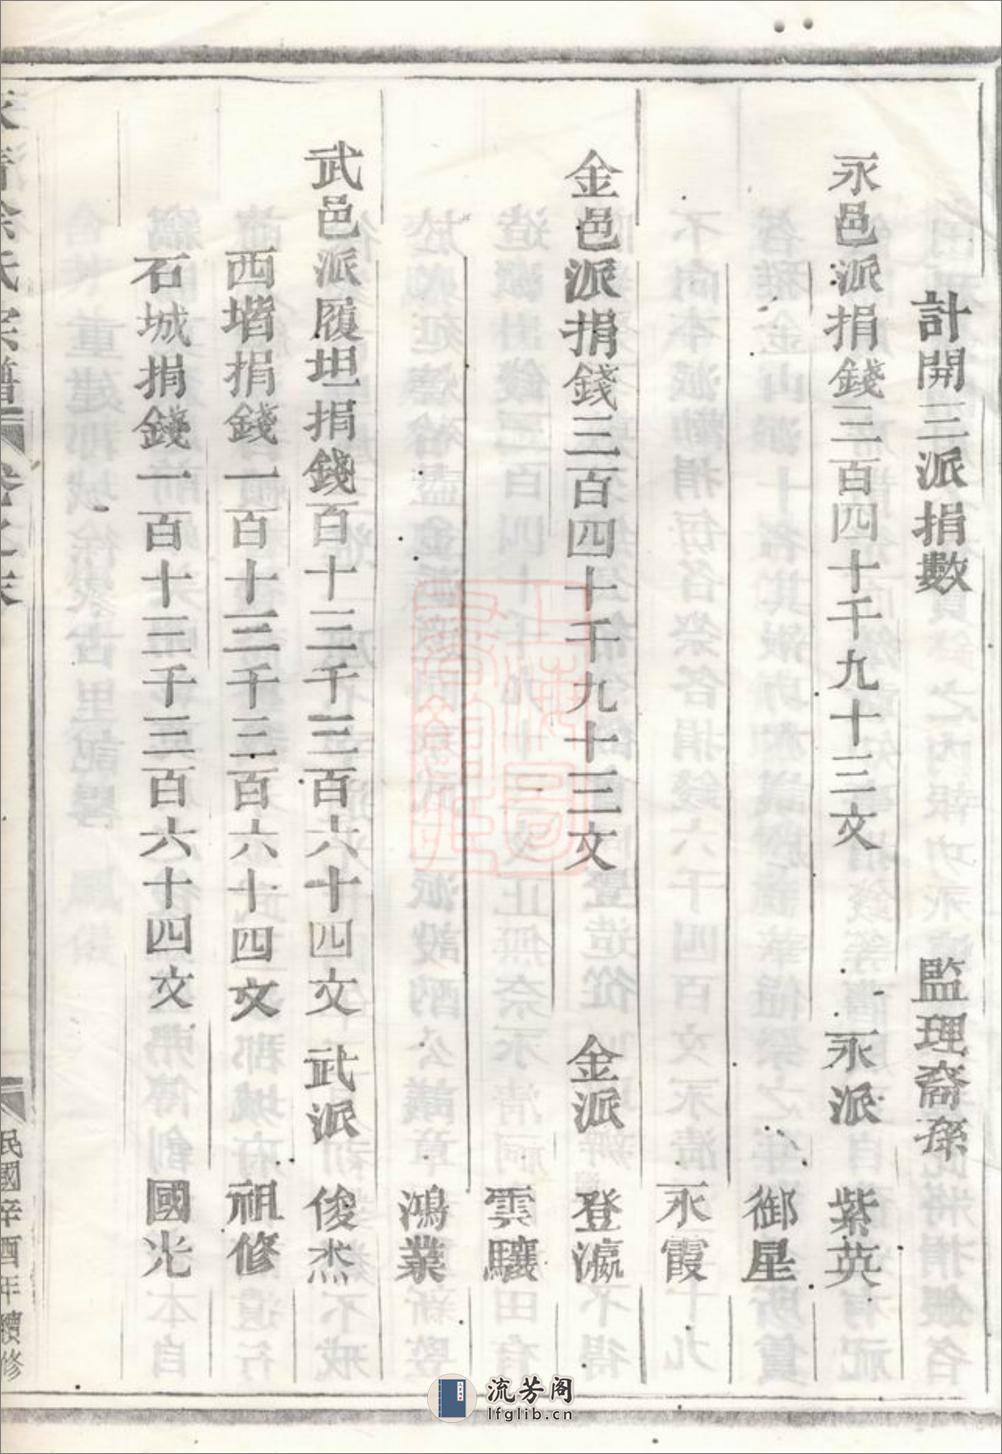 計開三派捐數 監理裔孫
永邑派捐錢三百四十千九十三文 永派 紫英
御星
永霞
金邑派捐錢三百四十千九十三文 金派 登瀛
雲驤
鴻業
武邑派履坦捐錢一百十三千三百六十四文 武派 俊杰
西堦捐錢一百十三千三百六十四文 祖修
石城捐錢一百十三千三百六十四文 國光
徐氏宗譜 卷之末 民國辛酉年續修
流芳阁
lfglib.cn